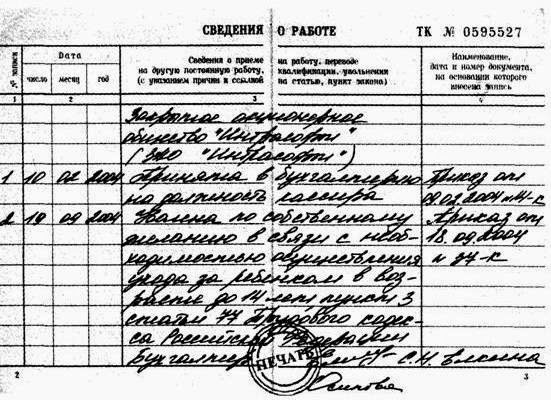 СВЕДЕНИЯ О РАБОТЕ ТК № 0595527
№ записи Дата Сведения о приеме на работу, переводе Наименование,
число месяц год на другую постоянную работу, квалификации, увольнении дата и номер документа,
(с указанием причин и ссылкой на статью, пункт закона) на основании которого
внесена запись
1 2 3 4
Закрытое акционерное
общество "Интрасофт"
(ЗАО "Интрасофт")
1 10 02 2004 Принята в бухгалтерию Приказ от
на должность кассира 09.02.2004 №4-к
2 19 09 2004 Уволена по собственному Приказ от
желанию в связи с необ- 18.09.2004
ходимостью осуществления № 37-к
ухода за ребенком в воз-
расте до 14 лет пункт 3
статьи 77 Трудового кодек-
са Российской Федерации
Бухгалтер С.Н. Елкина
ПЕЧАТЬ
2 3